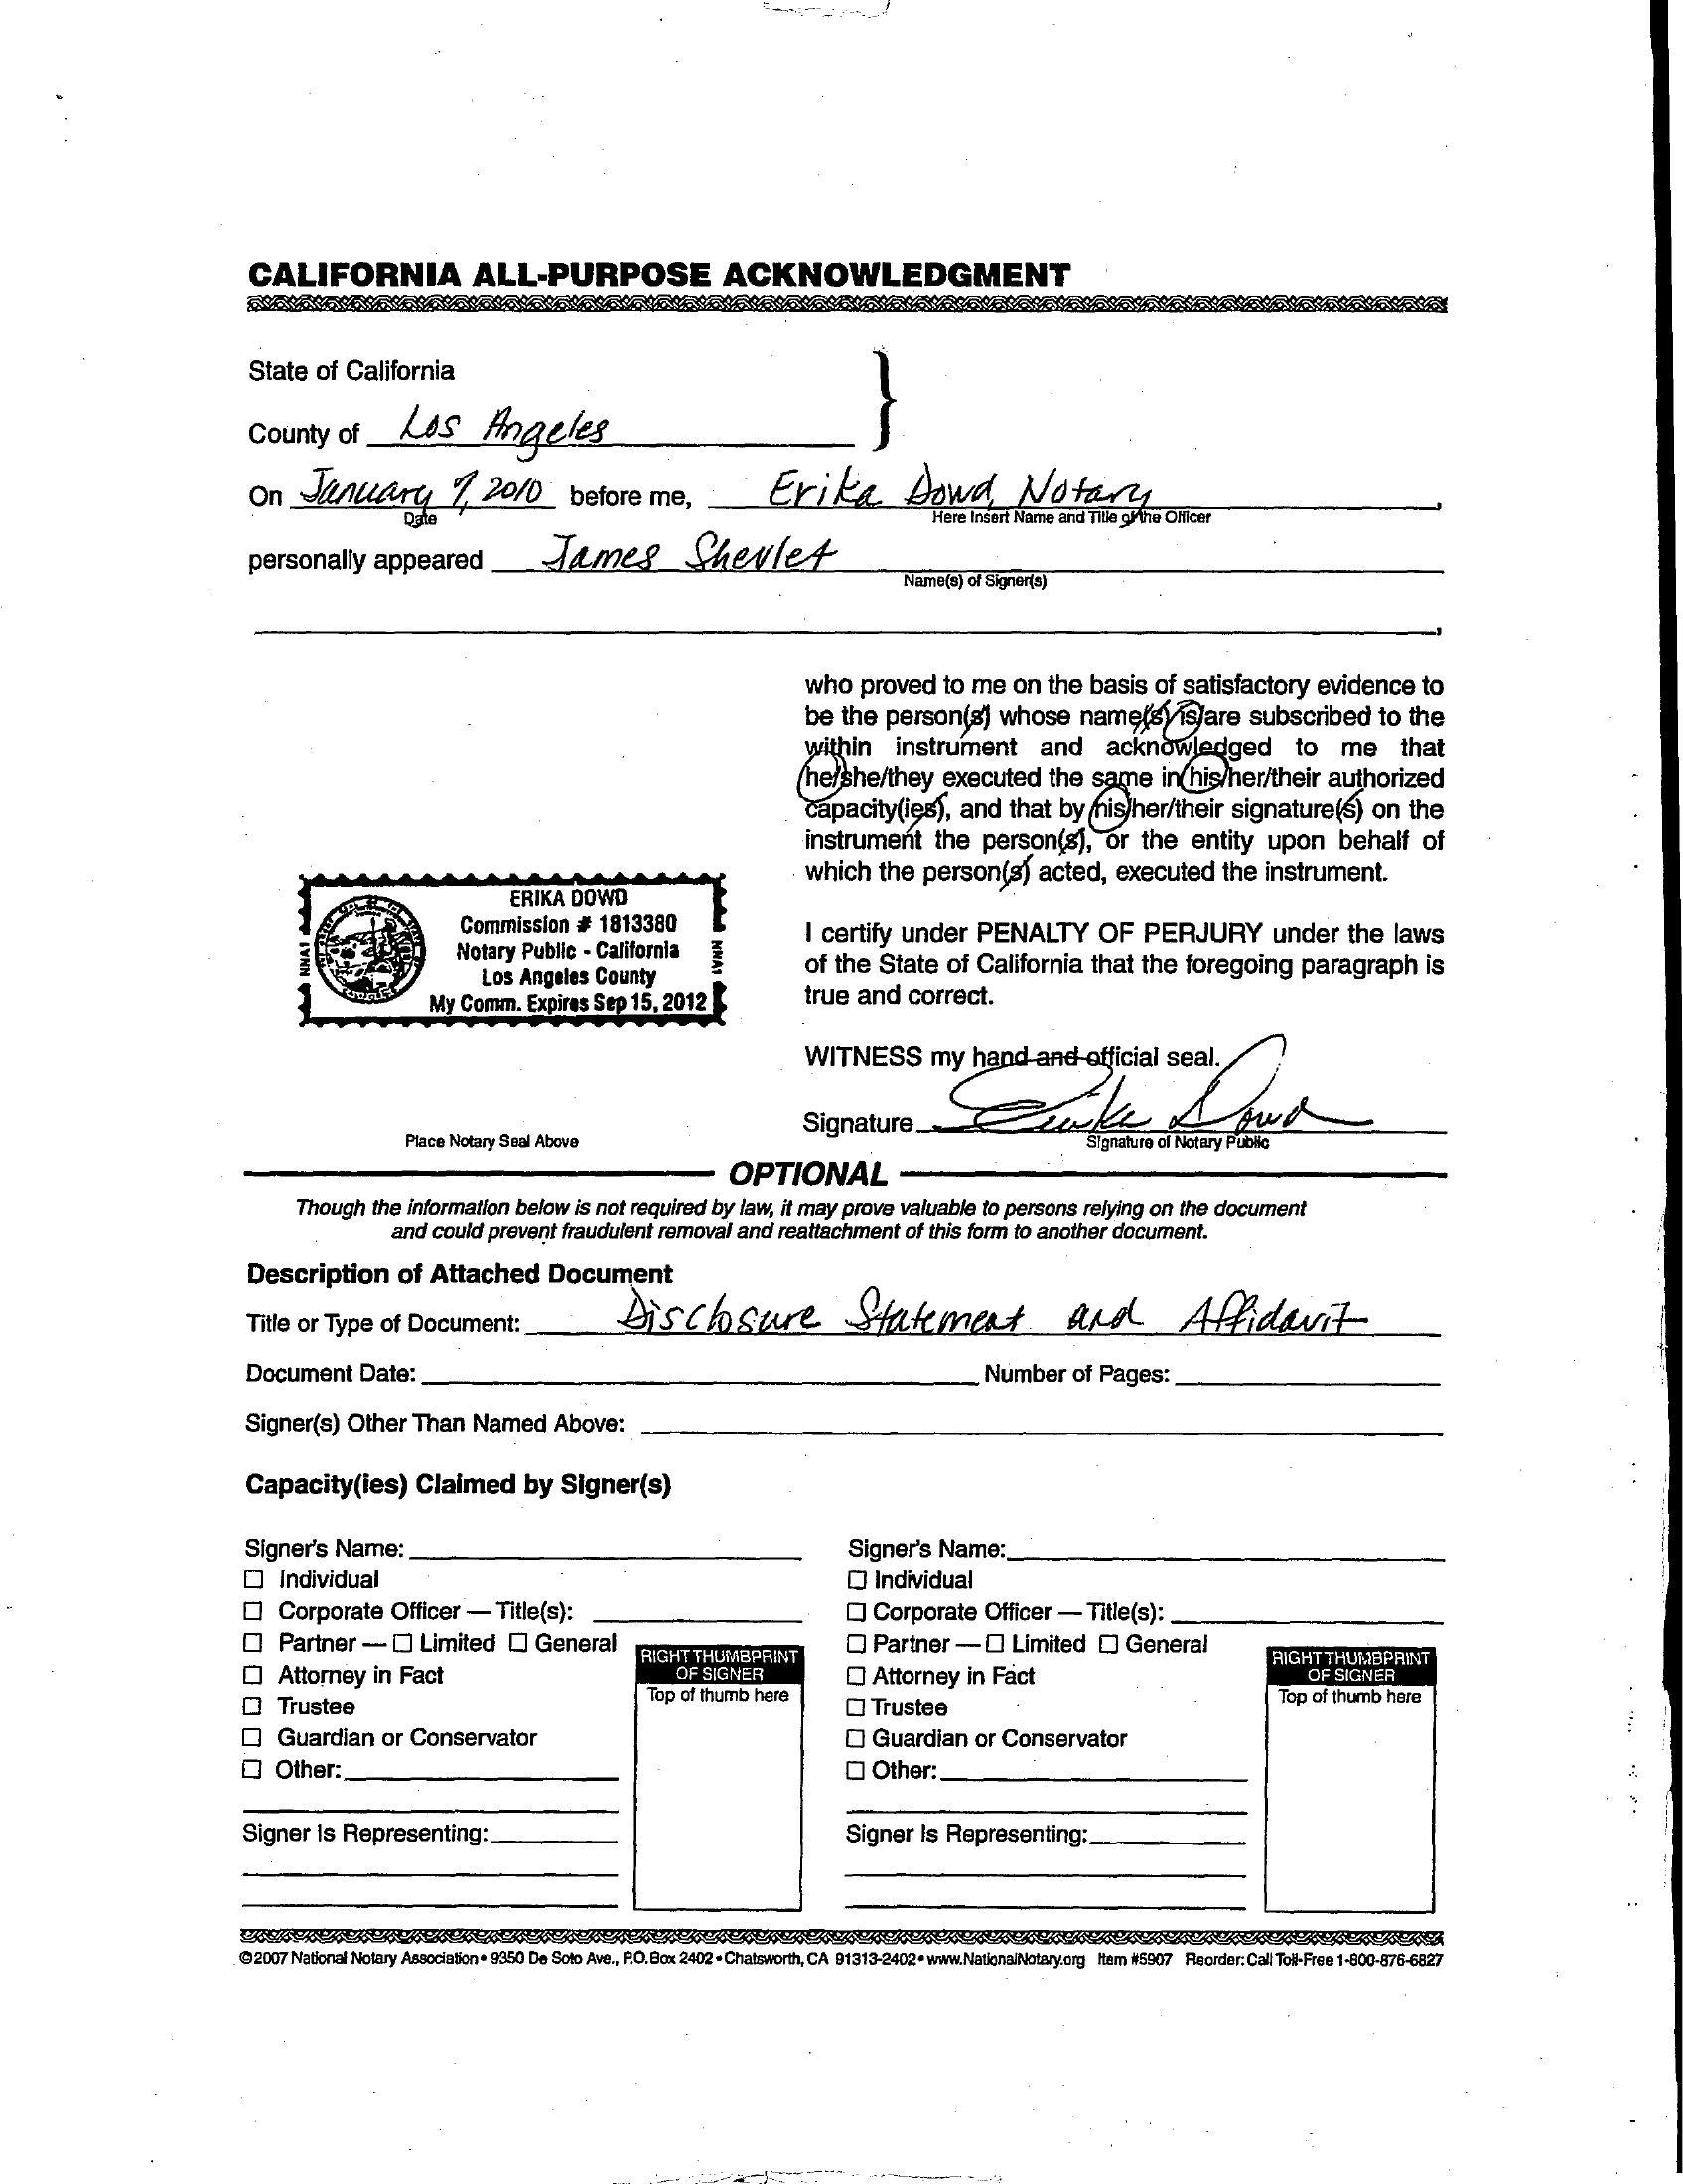 CALIFORNIA ALL-PURPOSE ACKNOWLEDGMENT
State of California
County of Los Angeles
}
On January 7, 2010 before me, Erika Dowd, Notary,
Date
Here Insert Name and Title of the Officer
personally appeared James Shevlet
Name(s) of Signer(s)
who proved to me on the basis of satisfactory evidence to
be the person(s) whose name(s) is/are subscribed to the
within instrument and acknowledged to me that
he/she/they executed the same in his/her/their authorized
capacity(ies), and that by his/her/their signature(s) on the
instrument the person(s), or the entity upon behalf of
which the person(s) acted, executed the instrument.
ERIKA DOWD
Commission # 1813380
Notary Public - California
Los Angeles County
My Comm. Expires Sep 15, 2012
NNA1
NNA1
I certify under PENALTY OF PERJURY under the laws
of the State of California that the foregoing paragraph is
true and correct.
WITNESS my hand and official seal.
Signature Erika Dowd
Place Notary Seal Above
Signature of Notary Public
OPTIONAL
Though the information below is not required by law, it may prove valuable to persons relying on the document
and could prevent fraudulent removal and reattachment of this form to another document.
Description of Attached Document
Title or Type of Document: Disclosure Statement and Affidavit
Document Date: Number of Pages:
Signer(s) Other Than Named Above:
Capacity(ies) Claimed by Signer(s)
Signer's Name:
☐ Individual
☐ Corporate Officer — Title(s):
☐ Partner — ☐ Limited ☐ General
☐ Attorney in Fact
☐ Trustee
☐ Guardian or Conservator
☐ Other:
Signer Is Representing:
RIGHT THUMBPRINT
OF SIGNER
Top of thumb here
Signer's Name:
☐ Individual
☐ Corporate Officer — Title(s):
☐ Partner — ☐ Limited ☐ General
☐ Attorney in Fact
☐ Trustee
☐ Guardian or Conservator
☐ Other:
Signer Is Representing:
RIGHT THUMBPRINT
OF SIGNER
Top of thumb here
©2007 National Notary Association • 9350 De Soto Ave., P.O. Box 2402 • Chatsworth, CA 91313-2402 • www.NationalNotary.org Item #5907 Reorder: Call Toll-Free 1-800-876-6827